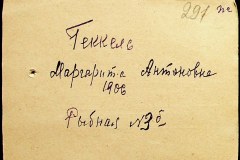 291 пе
Геккель
Маргарита Антоновна
1906
Рыбная №